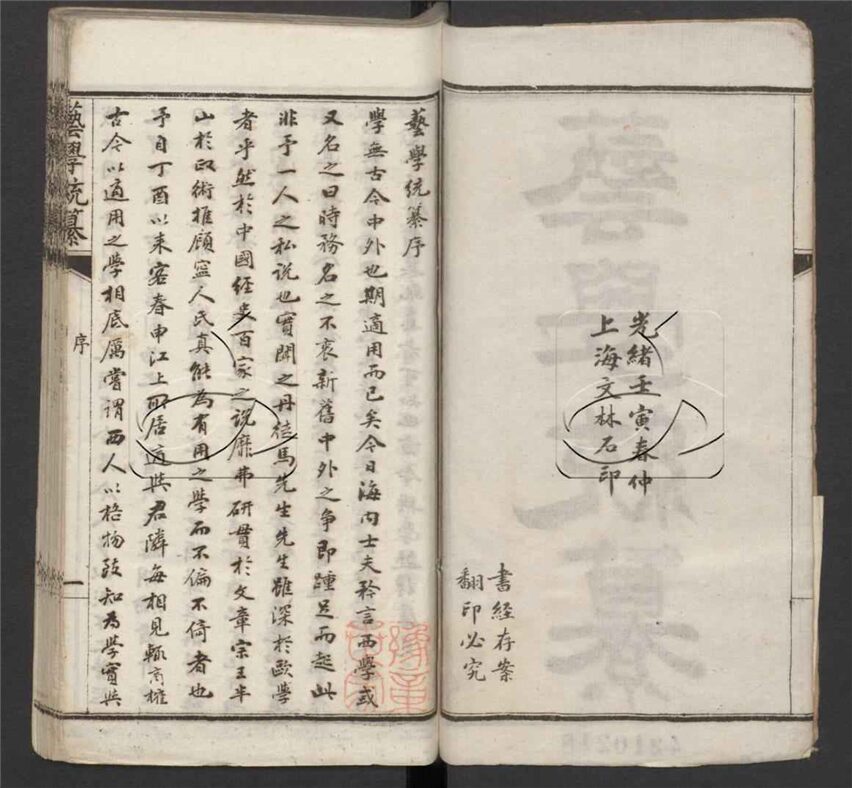 光緒壬寅春仲
上海文林石印
書經存案
翻印必究
藝學統纂序
學無古今中外也期適用而已矣今日海內士夫矜言西學或
又名之曰時務名之不衷新舊中外之爭即踵足而起此
非予一人之私說也實聞之丹徒馬先生先生雖深於歐學
者乎然於中國經史百家之說靡弗研貫於文章宗王半
山於政術推顧寧人氏真能為有用之學而不偏不倚者也
予自丁酉以來客春申江上所居適與君隣每相見輒商榷
古今以適用之學相底厲嘗謂西人以格物致知為學實與
藝學統纂
序
一